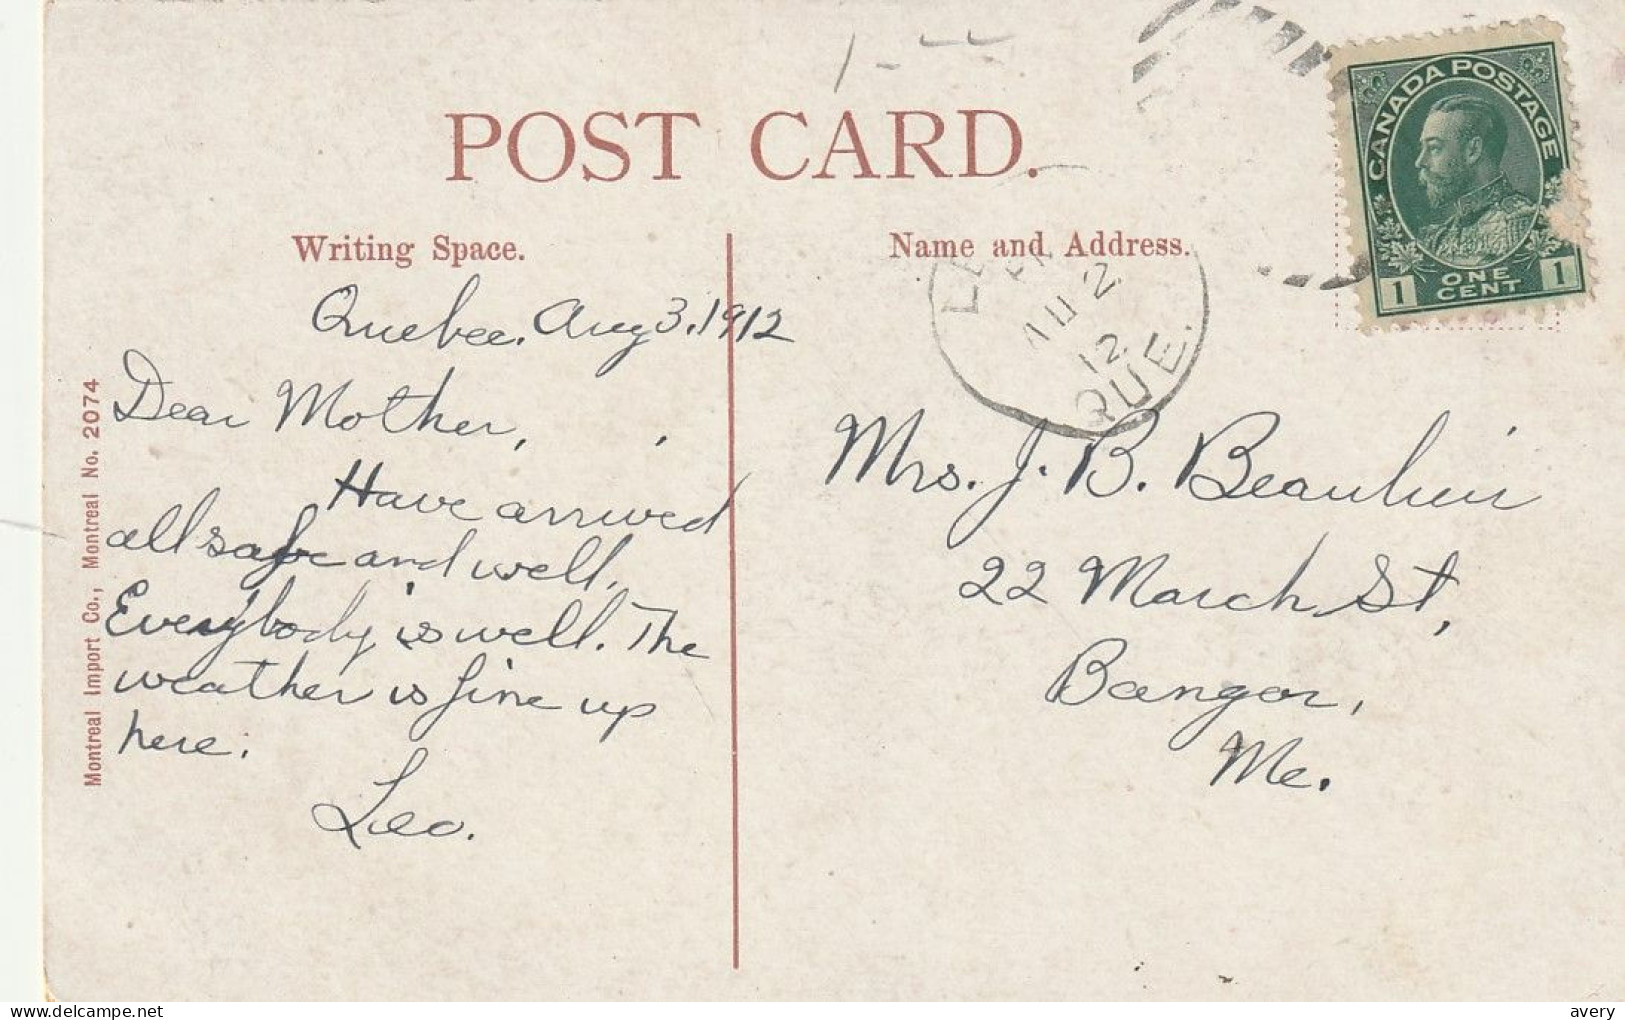 1 -
POST CARD.
Writing Space.
Name and Address.
CANADA POSTAGE
1 ONE CENT 1
LE
AU 2
12
QUE.
Quebec, Aug 3, 1912
Dear Mother,
Have arrived
all safe and well.
Everybody is well. The
weather is fine up
here.
Leo.
Mrs. J. B. Beaulieu
22 March St,
Bangor,
Me.
Montreal Import Co., Montreal No. 2074
delcampe.net
avery